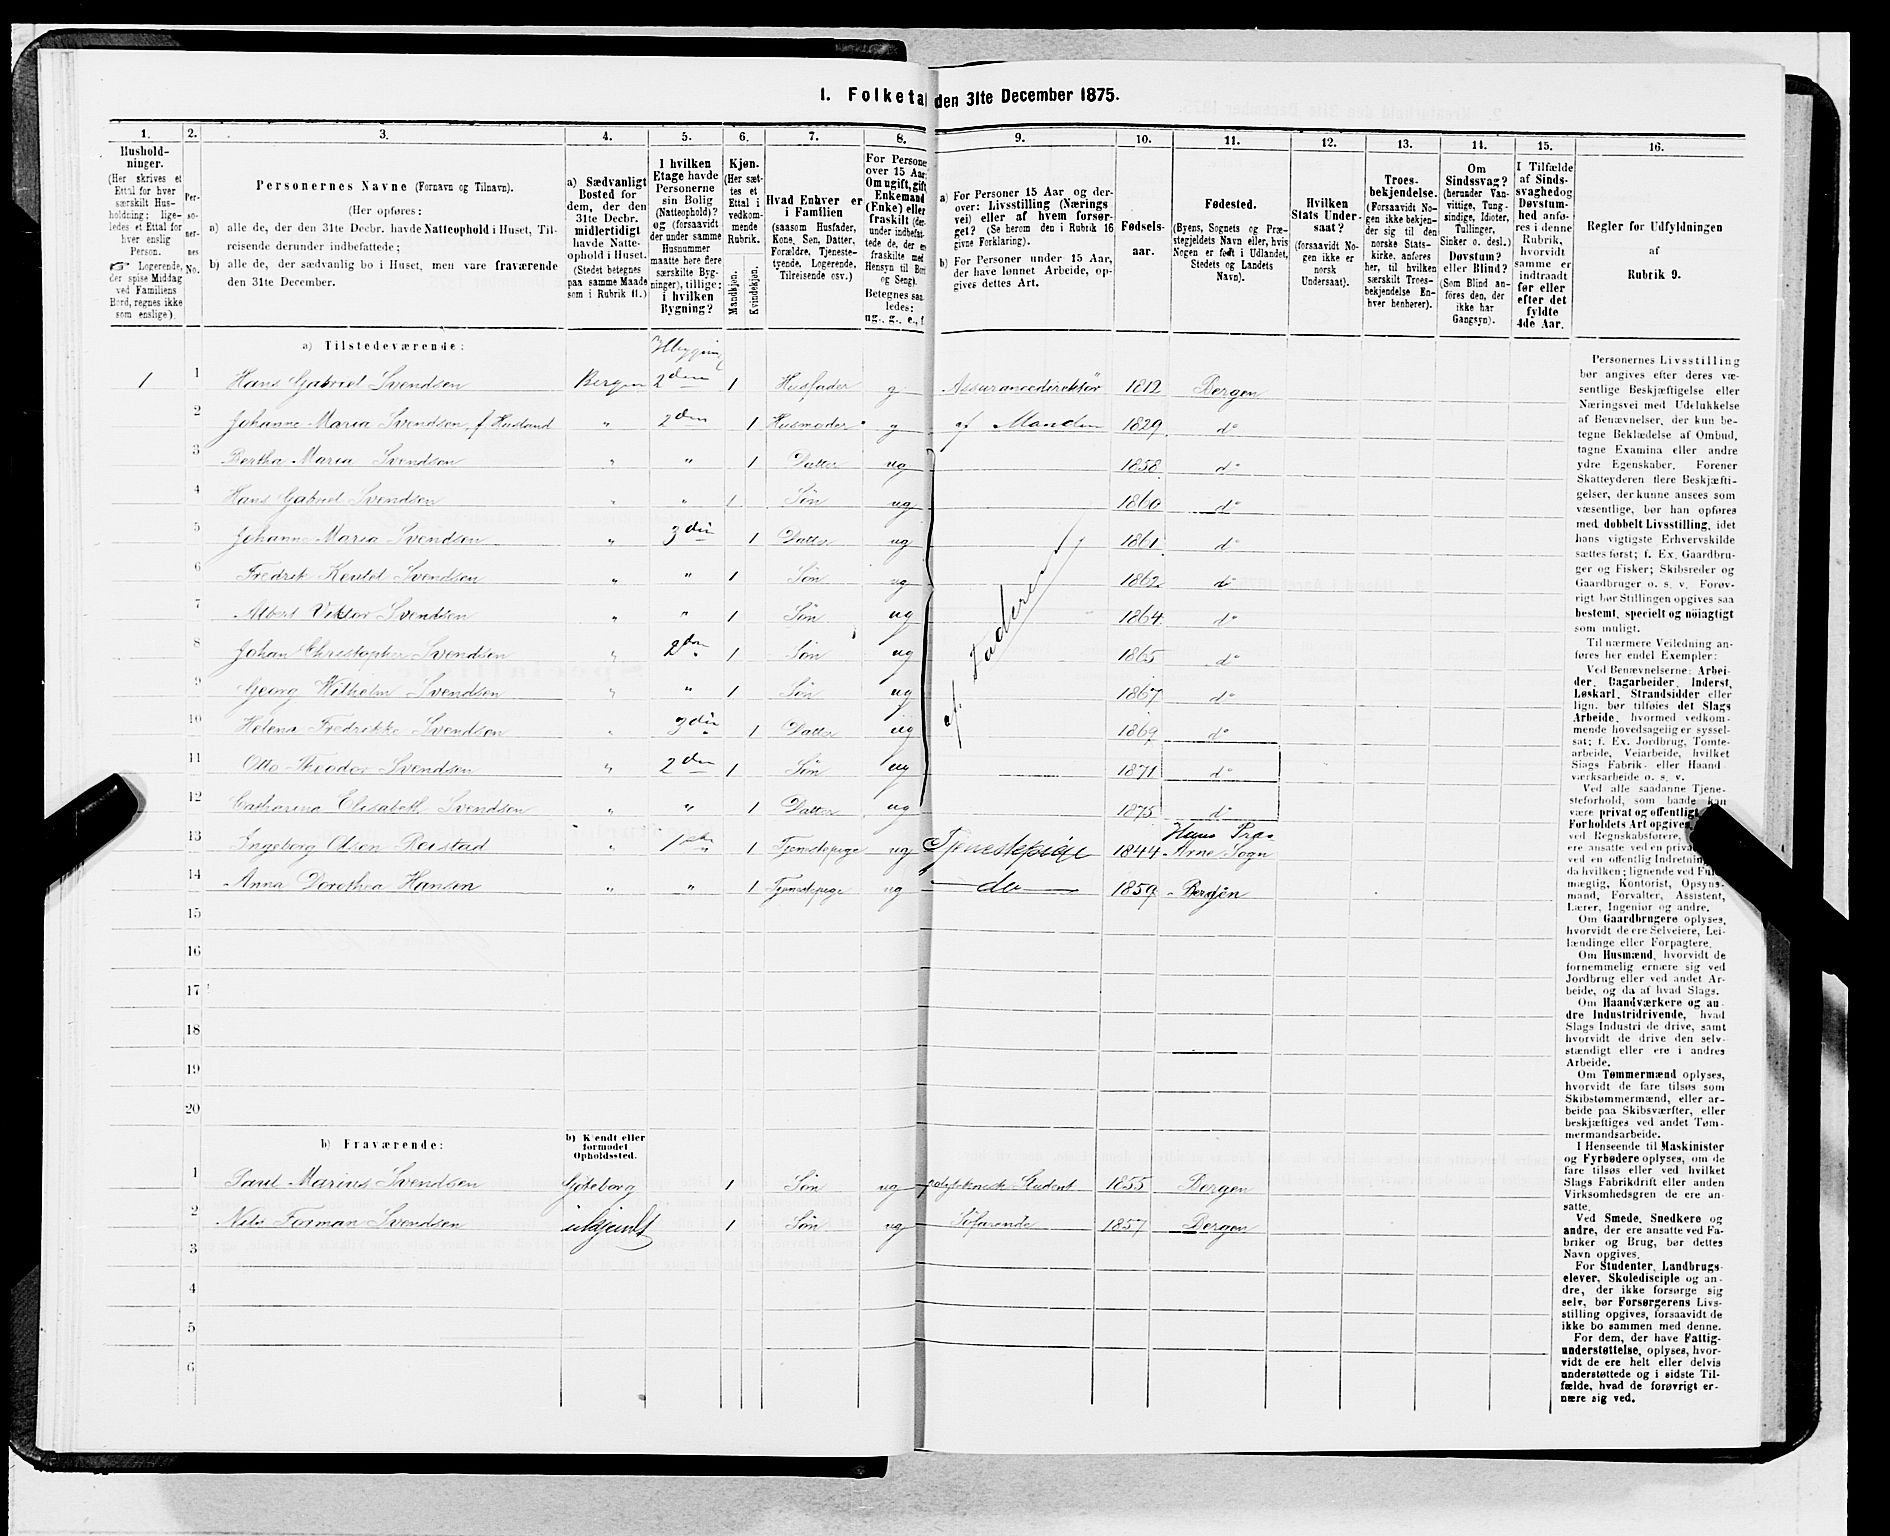 1. Folketal den 31te December 1875.
1. 2. 3. 4. 5. 6. 7. 8. 9. 10. 11. 12. 13. 14. 15. 16.
Hushold-
ninger.
(Her skrives et
Ettal for hver
særskilt Hus-
holdning; lige-
ledes et Ettal for
hver enslig
Person.
☞ Logerende,
der spise Middag
ved Familiens
Bord, regnes ikke
som enslige).
Per-
so-
ner-
nes
No.
Personernes Navne (Fornavn og Tilnavn).
(Her opføres:
a) alle de, der den 31te Decbr. havde Natteophold i Huset, Til-
reisende derunder indbefattede;
b) alle de, der sædvanlig bo i Huset, men vare fraværende
den 31te December.
a) Sædvanligt
Bosted for
dem, der den
31te Decbr.
midlertidigt
havde Natte-
ophold i Huset.
(Stedet betegnes
paa samme Maade
som i Rubrik 11.)
I hvilken
Etage havde
Personerne
sin Bolig
(Natteophold)?
og (forsaavidt
der under samme
Husnummer
maatte høre flere
særskilte Byg-
ninger), tillige:
i hvilken
Bygning?
Kjøn.
(Her sæt-
tes et
Ettal i
vedkom-
mende
Rubrik.
Mandkjøn.
Kvindekjøn.
Hvad Enhver er
i Familien
(saasom Husfader,
Kone, Søn, Datter,
Forældre, Tjeneste-
tyende, Logerende,
Tilreisende osv.)
For Persone
over 15 Aar
Om ugift, gift
Enkemand
(Enke) eller
fraskilt (der-
under indbefat-
tede de, der er
fraskilte med
Hensyn til Bord
og Seng).
Betegnes saa
ledes:
ug., g., e., f
a) For Personer 15 Aar og der-
over: Livsstilling (Nærings
vei) eller af hvem forsør-
get? (Se herom den i Rubrik 16
givne Forklaring).
b) For Personer under 15 Aar,
der have lønnet Arbeide, op-
gives dettes Art.
Fødsels-
aar.
Fødested.
(Byens, Sognets og Præ-
stegjeldets Navn eller, hvis
Nogen er født i Udlandet,
Stedets og Landets
Navn).
Hvilken
Stats Under-
saat?
(forsaavidt No-
gen ikke er
norsk
Undersaat).
Troes-
bekjendelse.
(Forsaavidt No-
gen ikke bekjen-
der sig til den
norske Stats-
kirke, anføres
her, til hvilken
særskilt Troes-
bekjendelse En-
hver henhører).
Om
Sindssvag?
(herunder Van-
vittige, Tung-
sindige, Idioter,
Tullinger,
Sinker o. desl.)
Døvstum?
eller Blind?
(Som Blind an-
føres den, der
ikke har
Gangsyn).
I Tilfælde
af Sinds-
svaghed og
Døvstum-
hed anfø-
res i denne
Rubrik,
hvorvidt
samme er
indtraadt
før eller
efter det
fyldte
4de Aar.
Regler for Udfyldningen
af
Rubrik 9.
a) Tilstedeværende:
1 1 Hans Gabriel Svendsen Bergen 2den 1 Husfader g Assurancedirektör 1812 Bergen
2 Johanne Maria Svendsen f Husland " 2den 1 Husmoder g af Manden 1829 do
3 Bertha Maria Svendsen " " 1 Datter ug 1858 do
4 Hans Gabriel Svendsen " " 1 Søn ug 1860 do
5 Johanne Maria Svendsen " 3die 1 Datter ug 1861 do
6 Fredrik Svendsen " " 1 Søn ug af Faderen 1862 do
7 Albert Viktor Svendsen " " 1 Søn ug 1864 do
8 Johan Christopher Svendsen " 2den 1 Søn ug 1865 do
9 Georg Wilhelm Svendsen " " 1 Søn ug 1867 do
10 Helena Fredrikke Svendsen " 3die 1 Datter ug 1869 do
11 Otto Theodor Svendsen " 2den 1 Søn ug 1871 do
12 Catharina Elisabeth Svendsen " " 1 Datter ug 1875 do
13 Ingeborg Olsen Reistad " 1 Tjenstepige ug Tjenestepige 1844 Hans Præs Arne Sogn
14 Anna Dorothea Hansen " " 1 Tjenstepige ug do 1859 Bergen
15
16
17
18
19
20
b) Fraværende:
b) Kjendt eller
formodet
Opholdssted.
1 Paul Marius Svendsen Gøteborg 1 Søn ug polyteknisk Student 1855 Bergen
2 Nils Forman Svendsen ubekjendt 1 Søn ug Söfarende 1857 Bergen
3
4
5
6
Personernes Livsstilling
bør angives efter deres væ-
sentlige Beskjæftigelse eller
Næringsvei med Udelukkelse
af Benævnelser, der kun be-
tegne Beklædelse af Ombud,
tagne Examina eller andre
ydre Egenskaber. Forener
Skatteyderen flere Beskjæfti-
gelser, der kunne ansees som
væsentlige, bør han opføres
med dobbelt Livsstilling, idet
hans vigtigste Erhvervskilde
sættes først; f. Ex. Gaardbru-
ger og Fisker; Skibsreder og
Gaardbruger o. s. v. Forøv-
rigt bør Stillingen opgives saa
bestemt, specielt og nøiagtigt
som muligt.
Til nærmere Veiledning an-
føres her endel Exempler:
Ved Benævnelserne: Arbei-
der, Dagarbeider, Inderst,
Løskarl, Strandsidder eller
lign. bør tilføies det Slags
Arbeide, hvormed vedkom-
mende hovedsagelig er syssel-
sat; f. Ex. Jordbrug, Tomte-
arbeide, Veiarbeide, hvilket
Slags Fabrik- eller Haand
værksarbeide o. s. v.
Ved alle saadanne Tjene-
steforhold, som baade kan
være privat og offentlig,
Forholdets Art opgives,
ved Regnskabsførere,
ere ansatte ved en privat
ved en offentlig Indretning
da hvilken; lignende ved Fuld-
mægtig, Kontorist, Opsyns-
mand, Forvalter, Assistent,
Lærer, Ingeniør og andre.
Om Gaardbrugere oplyses,
hvorvidt de ere Selveiere, Lei-
lændinge eller Forpagtere.
Om Husmænd, hvorvidt de
fornemmelig ernære sig ved
Jordbrug eller ved andet Ar-
beide, og da af hvad Slags.
Om Haandværkere og an-
dre Industridrivende, hvad
Slags Industri de drive, samt
hvorvidt de drive den selv-
stændigt eller ere i andres
Arbeide.
Om Tømmermænd oplyses,
hvorvidt de fare tilsøs som
Skibstømmermænd, eller ar-
beide paa Skibsværfter, eller
beskjæftiges ved andet Tøm-
mermandsarbeide.
I Henseende til Maskinister
og Fyrbødere oplyses, om de
fare tilsøs eller ved hvilket
Slags Fabrikdrift eller anden
Virksomhedsgren de ere an-
satte.
Ved Smede, Snedkere og
andre, der ere ansatte ved Fa-
briker og Brug, bør dettes
Navn opgives.
For Studenter, Landbrugs-
elever, Skoledisciple og an-
dre, der ikke forsørge sig
selv, bør Forsørgerens Livs-
stilling opgives, forsaavidt de
ikke bo sammen med denne.
For dem, der have Fattig-
understøttelse, oplyses, hvor-
vidt de ere helt eller delvis
understøttede og i sidste Til-
fælde, hvad de forøvrigt er-
nære sig ved.